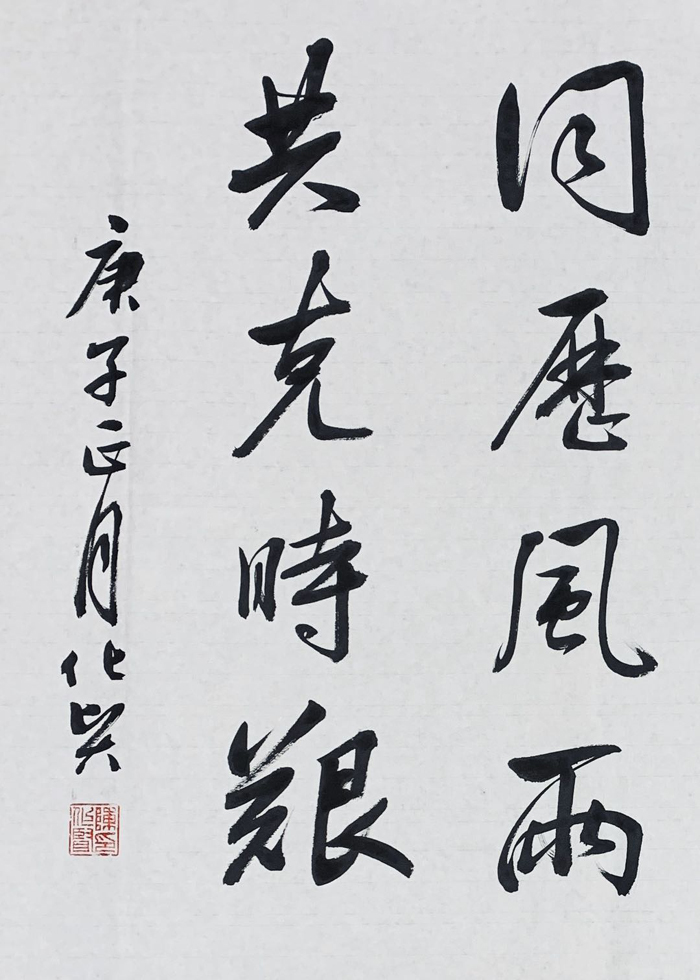 同歷風雨
共克時艱
庚子正月化賢